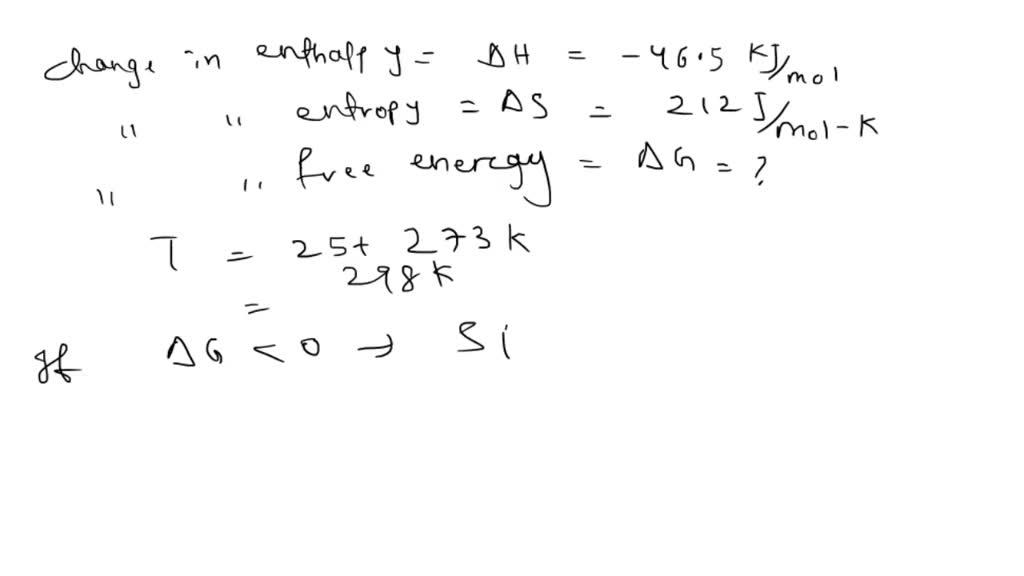 change in enthalpy = ΔH = -46.5 KJ/mol
" " entropy = ΔS = 212 J/mol-K
" " free energy = ΔG = ?
T = 25+ 273 k
= 298 k
If ΔG < 0 → Si